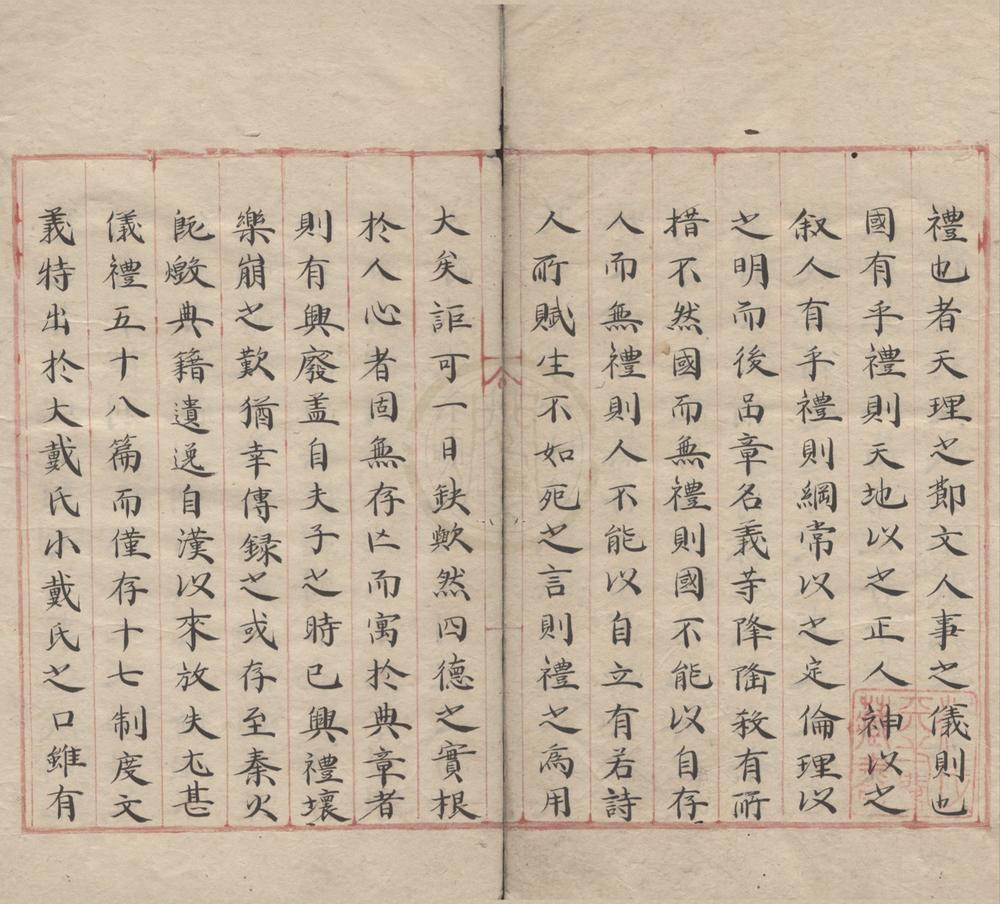 禮也者天理之節文人事之儀則也
國有乎禮則天地以之正人神以之
叙人有乎禮則綱常以之定倫理以
之明而後啚章名義等降隆殺有所
措不然國而無禮則國不能以自存
人而無禮則人不能以自立有若詩
人所賦生不如死之言則禮之為用
大矣詎可一日缺歟然四德之實根
於人心者固無存亡而寓於典章者
則有興廢盖自夫子之時已興禮壞
樂崩之歎猶幸傳録之或存至秦火
既燬典籍遺逸自漢以來放失尤甚
儀禮五十八篇而僅存十七制度文
義特出於大戴氏小戴氏之口雖有